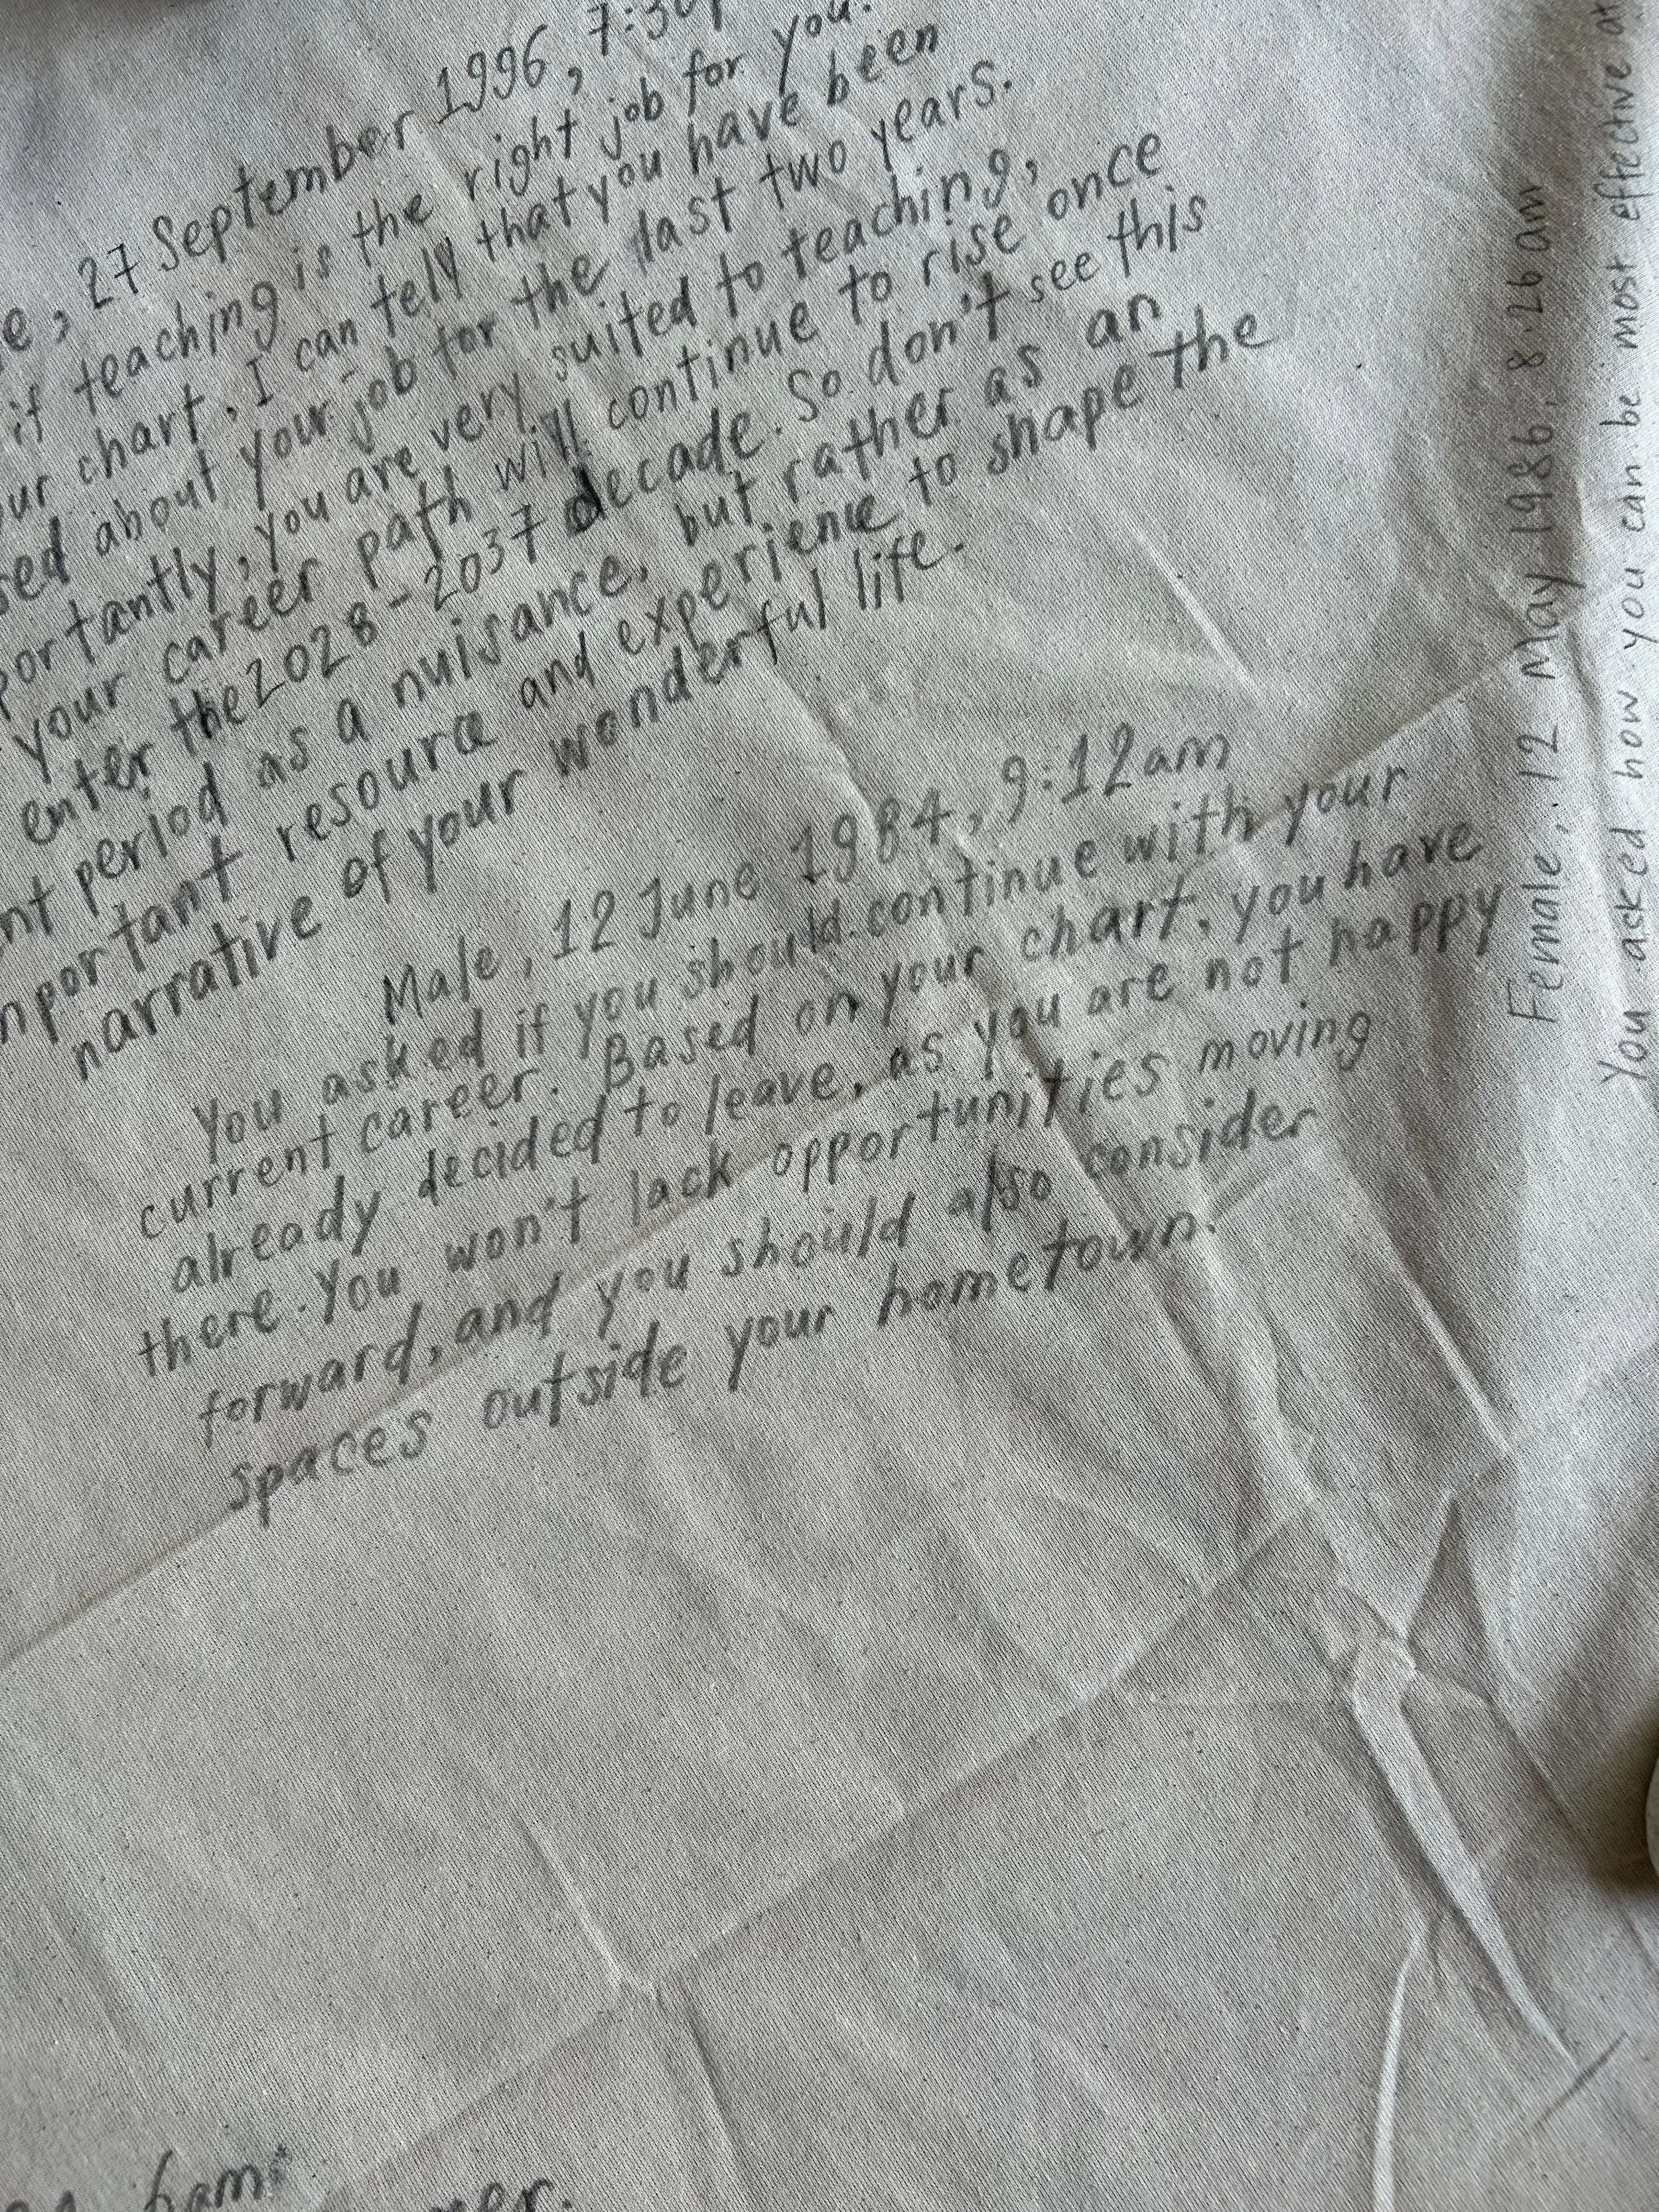 27 September 1996, 7:30
if teaching is the right job for you.
chart. I can tell that you have been
about your job for the last two years.
you are very suited to teaching,
your career path will continue to rise once
enter the 2028-2037 decade. So don't see this
period as a nuisance, but rather as an
resource and experience to shape the
narrative of your wonderful life.
Male, 12 June 1984, 9:12am
You asked if you should continue with your
current career. Based on your chart, you have
already decided to leave, as you are not happy
there. You won't lack opportunities moving
forward, and you should also consider
spaces outside your hometown.
Female, 12 May 1986, 8.26am
You asked how you can be most effective at